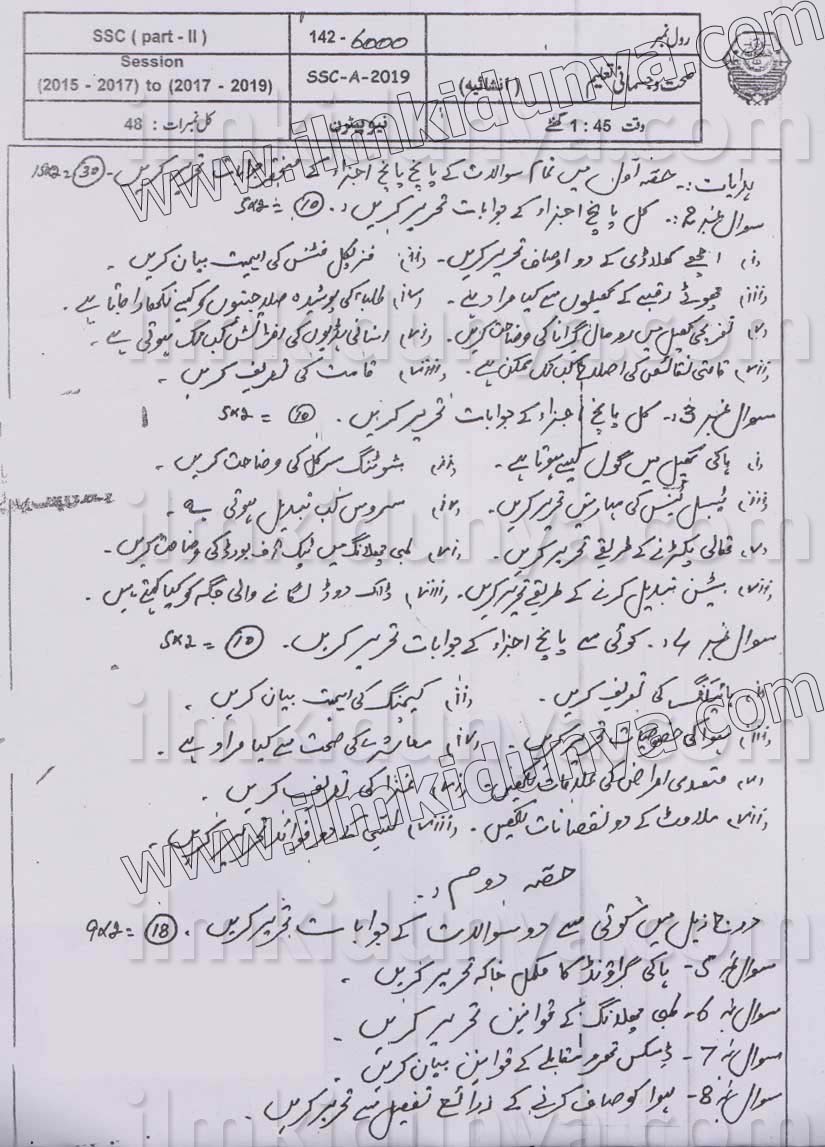 SSC ( part - II )
142 - 6000
رول نمبر
Session
(2015 - 2017) to (2017 - 2019)
SSC-A-2019
صحت و جسمانی تعلیم (انشائیہ)
کل نمبرات : 48
نیو پیٹرن
وقت 1 : 45 گھنٹے
ہدایات :۔ حصہ اول میں تمام سوالات کے پانچ پانچ اجزاء کے مختصر جوابات تحریر کریں ۔ 15x2 = 30
سوال نمبر 2 :۔ کل پانچ اجزاء کے جوابات تحریر کریں ۔ 5x2 = 10
(i) اچھے کھلاڑی کے دو اوصاف تحریر کریں ۔ (ii) فزیکل فٹنس کی اہمیت بیان کریں ۔
(iii) چھوٹے رقبے کے کھیلوں سے کیا مراد ہے ۔ (iv) طلباء کی پوشیدہ صلاحیتوں کو کیسے نکھارا جاتا ہے ۔
(v) تفریحی کھیل میں رومال گرانا کی وضاحت کریں ۔ (vi) انسانی ہڈیوں کی افزائش کب تک ہوتی ہے ۔
(vii) قامتی نقائص کی اصلاح کب تک ممکن ہے ۔ (viii) قامت کی تعریف کریں ۔
سوال نمبر 3 :۔ کل پانچ اجزاء کے جوابات تحریر کریں ۔ 5x2 = 10
(i) ہاکی کھیل میں گول کیسے ہوتا ہے ۔ (ii) شوٹنگ سرکل کی وضاحت کریں ۔
(iii) ٹیبل ٹینس کی مہارتیں تحریر کریں ۔ (iv) سروس کب تبدیل ہوتی ہے ۔
(v) تھالی پکڑنے کے طریقے تحریر کریں ۔ (vi) لمبی چھلانگ میں ٹیک آف بورڈ کی وضاحت کریں ۔
(vii) بیٹن تبدیل کرنے کے طریقے تحریر کریں ۔ (viii) ڈاک دوڑ لگانے والی جگہ کو کیا کہتے ہیں ۔
سوال نمبر 4 :۔ کوئی سے پانچ اجزاء کے جوابات تحریر کریں ۔ 5x2 = 10
(i) ہائیکنگ کی تعریف کریں ۔ (ii) کیمپنگ کی اہمیت بیان کریں ۔
(iii) ہوا کی خصوصیات تحریر کریں ۔ (iv) معاشرے کی صحت سے کیا مراد ہے ۔
(v) متعدی امراض کی علامات لکھیں ۔ (vi) غذا کی تعریف کریں ۔
(vii) ملاوٹ کے دو نقصانات لکھیں ۔ (viii) کے دو فوائد تحریر کریں ۔
حصہ دوم :۔
درج ذیل میں کوئی سے دو سوالات کے جوابات تحریر کریں ۔ 9x2 = 18
سوال نمبر 5 - ہاکی گراؤنڈ کا مکمل خاکہ تحریر کریں ۔
سوال نمبر 6 - لمبی چھلانگ کے قوانین تحریر کریں ۔
سوال نمبر 7 - ڈسکس تھرو مقابلے کے قوانین بیان کریں ۔
سوال نمبر 8 - ہوا کو صاف کرنے کے ذرائع تفصیل سے تحریر کریں ۔
www.ilmkidunya.com
www.ilmkidunya.com
ilmkidunya.com
ilmkidunya.com
ilmkidunya.com
ilmkidunya.com
ilmkidunya.com
ilmkidunya.com